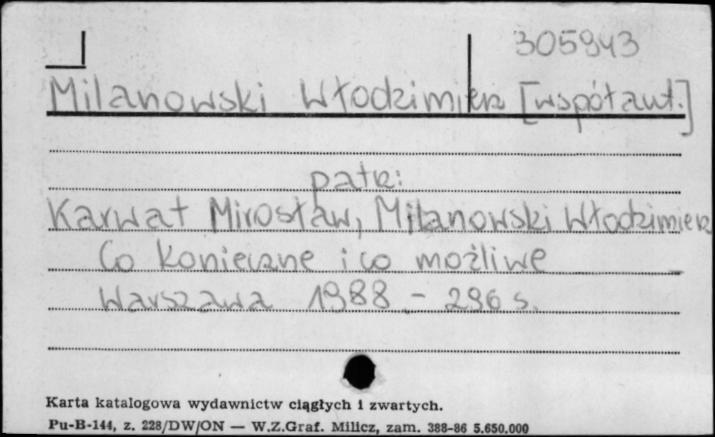 305943
Milanowski Włodzimierz [współaut.]
patrz:
Karwat Mirosław, Milanowski Włodzimierz
Co konieczne i co możliwe
Warszawa 1988. - 296 s.
Karta katalogowa wydawnictw ciągłych i zwartych.
Pu-B-144, z. 228/DW/ON — W.Z.Graf. Milicz, zam. 388-86 5.650.000